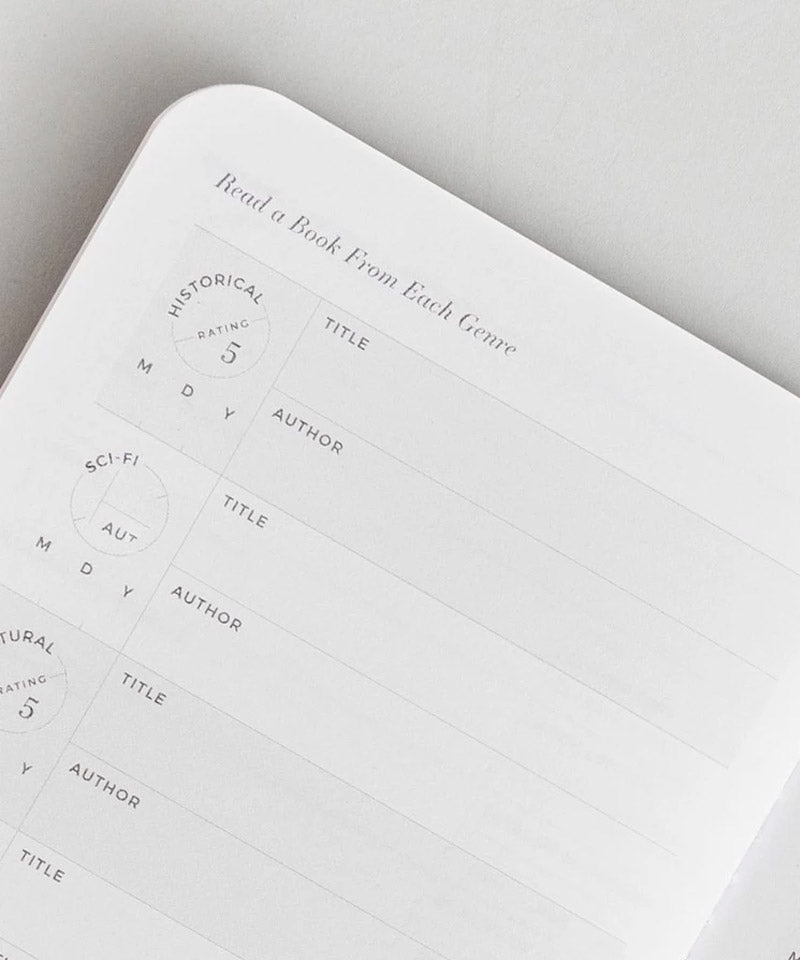 Read a Book From Each Genre
HISTORICAL
RATING
5
M D Y
TITLE
AUTHOR
SCI-FI
AUT
M D Y
TITLE
AUTHOR
TURAL
RATING
5
Y
TITLE
AUTHOR
TITLE